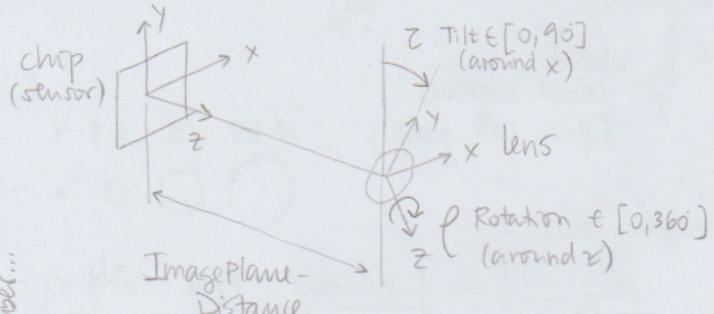 Y
X
Z
chip
(sensor)
τ Tilt ∈ [0, 90°]
(around x)
Y
X lens
Z
ρ Rotation ∈ [0, 360°]
(around z)
d = ImagePlane-
Distance